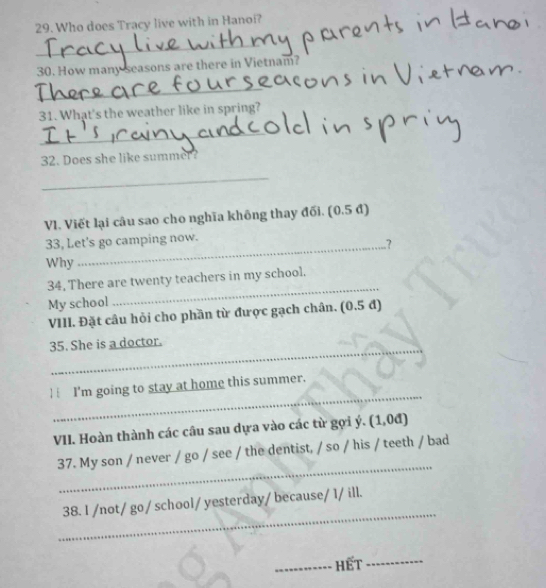 29. Who does Tracy live with in Hanoi?
Tracy live with my parents in Hanoi
30. How many seasons are there in Vietnam?
There are four seacons in Vietnam.
31. What's the weather like in spring?
It's rainy and cold in spriy
32. Does she like summer?
VI. Viết lại câu sao cho nghĩa không thay đổi. (0.5 đ)
33, Let's go camping now.
Why ?
34, There are twenty teachers in my school.
My school
VIII. Đặt câu hỏi cho phần từ được gạch chân. (0.5 đ)
35. She is a doctor.
I'm going to stay at home this summer.
VII. Hoàn thành các câu sau dựa vào các từ gợi ý. (1,0đ)
37. My son / never / go / see / the dentist, / so / his / teeth / bad
38. I /not/ go/ school/ yesterday/ because/ I/ ill.
------------ HẾT ------------